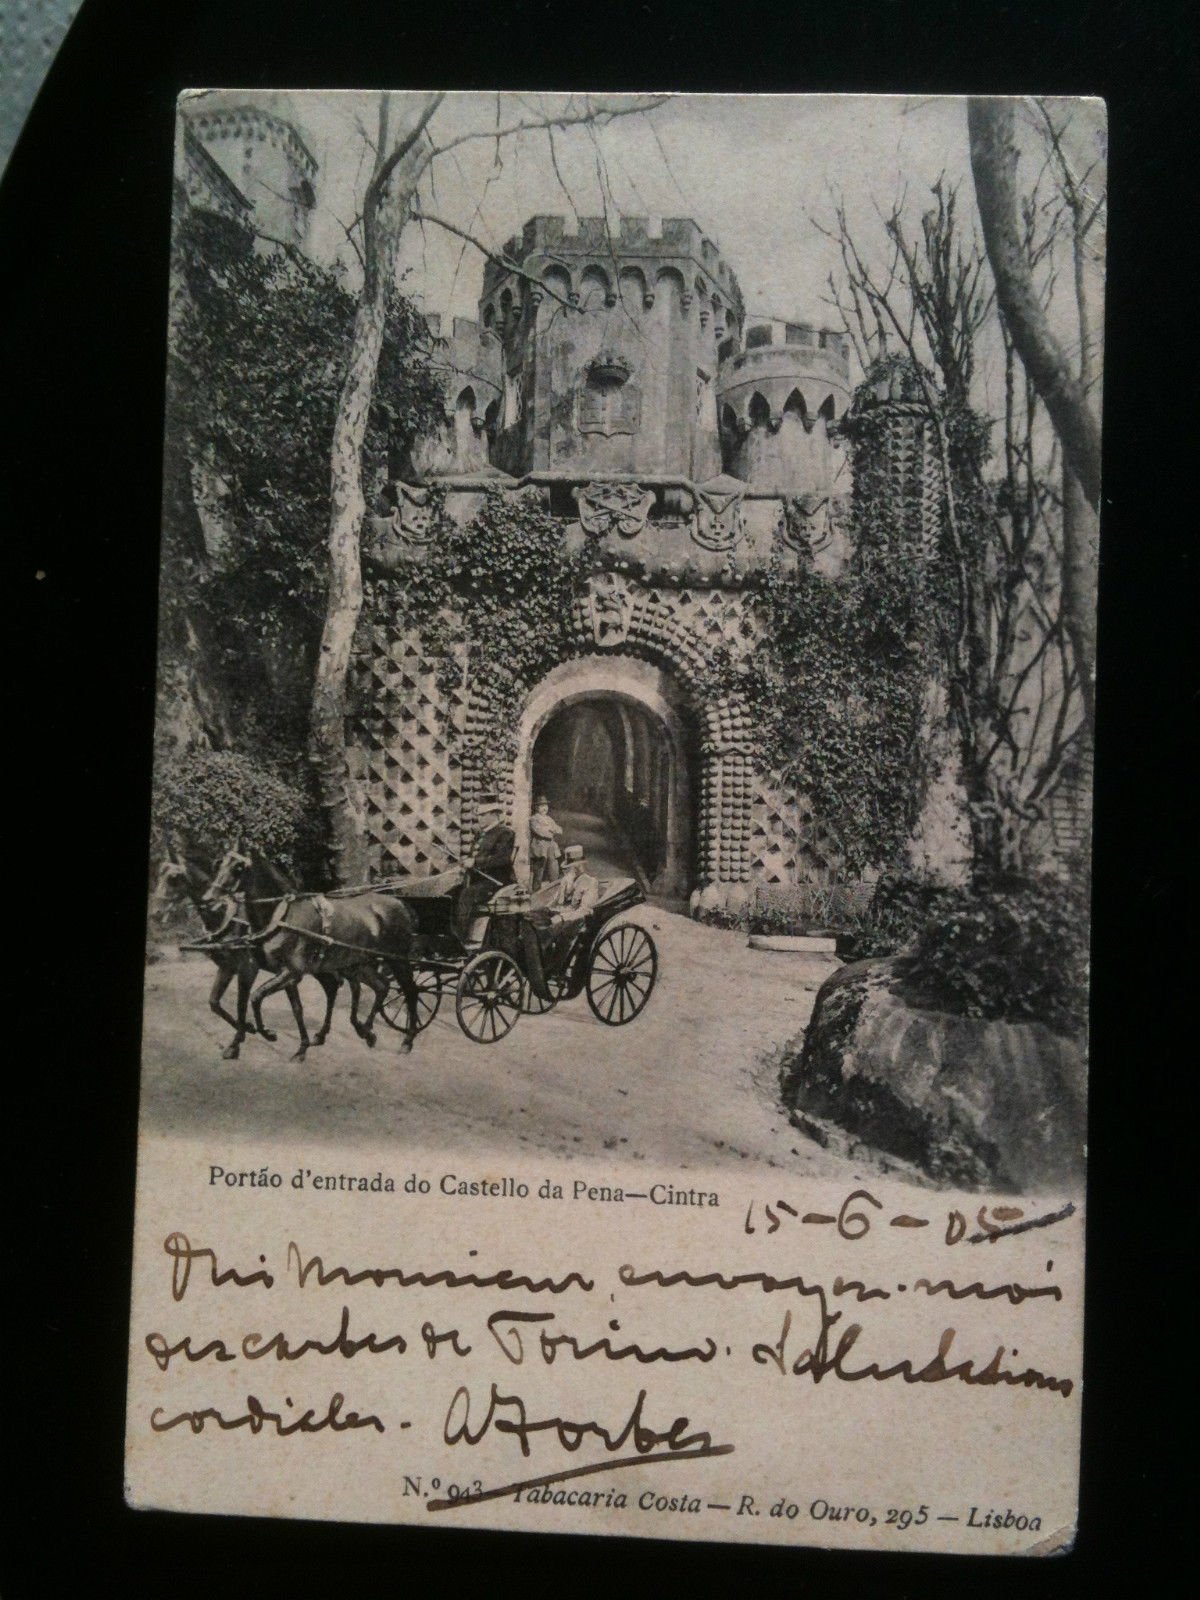 Portão d'entrada do Castello da Pena—Cintra
15-6-05
Oui Monsieur, envoyez-moi
des cartes de Torino. Salutations
cordiales. A Forbes
N.º 943 — Tabacaria Costa — R. do Ouro, 295 — Lisboa